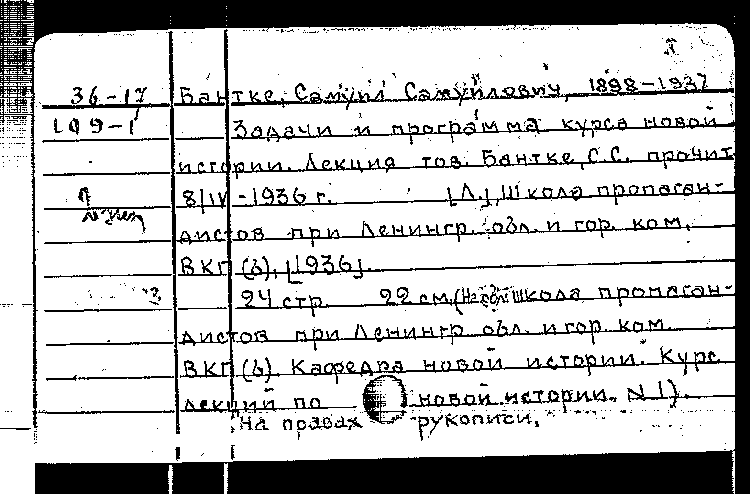 36-17 Бантке, Самуил Самуйлович, 1898-1937
109-1 Задачи и программа курса новой
истории. Лекция тов. Бантке, С.С. прочит
8/IV-1936 г. [Л.], Школа пропаган-
дистов при Ленингр. обл. и гор. ком.
ВКП(б), [1936].
24 стр. 22 см. школа пропаган-
дистов при Ленингр. обл. и гор. ком.
ВКП(б). Кафедра новой истории. Курс
лекций по новой истории. N 1).
На правах рукописи.